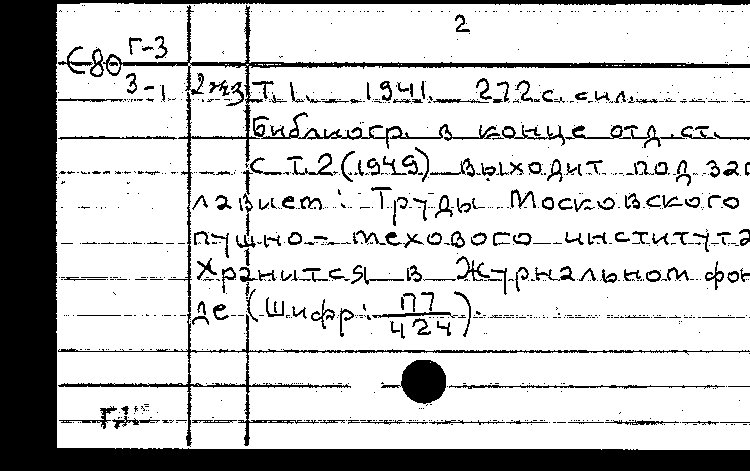 2
Г-3
Є80
3-1 2 экз Т. 1. 1941. 272 с. с ил.
Библиогр. в конце отд. ст.
С Т. 2 (1949) выходит под заг
лавием: Труды Московского
пушно-мехового института
Хранится в Журнальном фон
де (Шифр: П7/424).